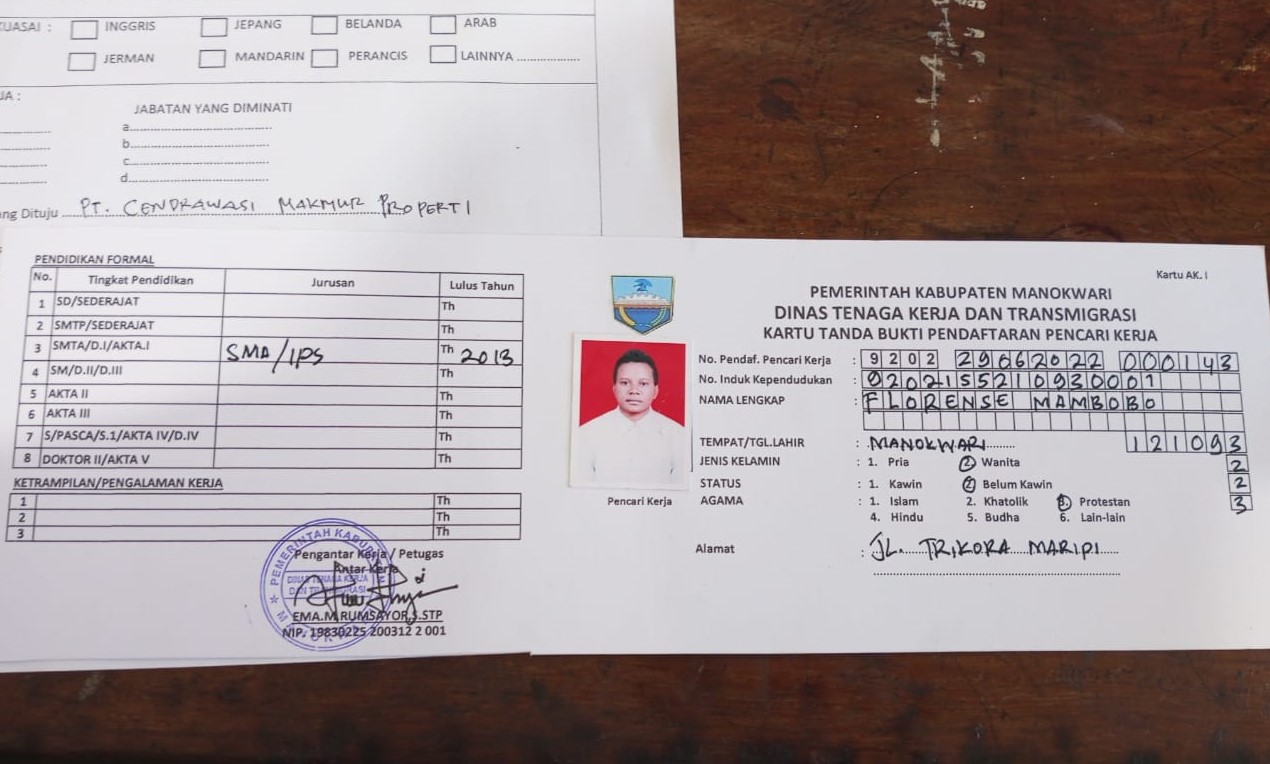 KUASAI : INGGRIS JEPANG BELANDA ARAB
JERMAN MANDARIN PERANCIS LAINNYA ....................
JA :
JABATAN YANG DIMINATI
a............................................
b............................................
c............................................
d............................................
ng Dituju ..... PT. CENDRAWASI MAKMUR PROPERTI
PENDIDIKAN FORMAL
No. Tingkat Pendidikan Jurusan Lulus Tahun
1 SD/SEDERAJAT Th
2 SMTP/SEDERAJAT Th
3 SMTA/D.I/AKTA.I SMA/IPS Th 2013
4 SM/D.II/D.III Th
5 AKTA II Th
6 AKTA III Th
7 S/PASCA/S.1/AKTA IV/D.IV Th
8 DOKTOR II/AKTA V Th
KETRAMPILAN/PENGALAMAN KERJA
1 Th
2 Th
3 Th
PEMERINTAH KABU
DINAS TENAGA KERJA
DAN TRANSMIGRASI
Pengantar Kerja / Petugas
Antar Kerja
EMA.M.RUMSAYOR,S.STP
NIP. 19830225 200312 2 001
Kartu AK. I
PEMERINTAH KABUPATEN MANOKWARI
DINAS TENAGA KERJA DAN TRANSMIGRASI
KARTU TANDA BUKTI PENDAFTARAN PENCARI KERJA
No. Pendaf. Pencari Kerja : 9202 29062022 000143
No. Induk Kependudukan : 9202155210930001
NAMA LENGKAP : FLORENSE MAMBOBO
TEMPAT/TGL.LAHIR : MANOKWARI......... 121093
JENIS KELAMIN : 1. Pria 2. Wanita 2
STATUS : 1. Kawin 2. Belum Kawin 2
AGAMA : 1. Islam 2. Khatolik 3. Protestan 3
4. Hindu 5. Budha 6. Lain-lain
Pencari Kerja
Alamat : JL. TRIKORA MARIPI